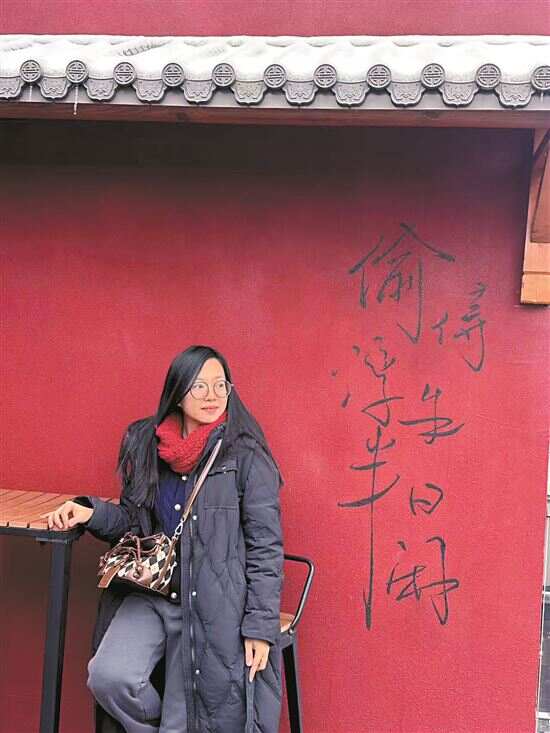 偷得
浮生
半日闲